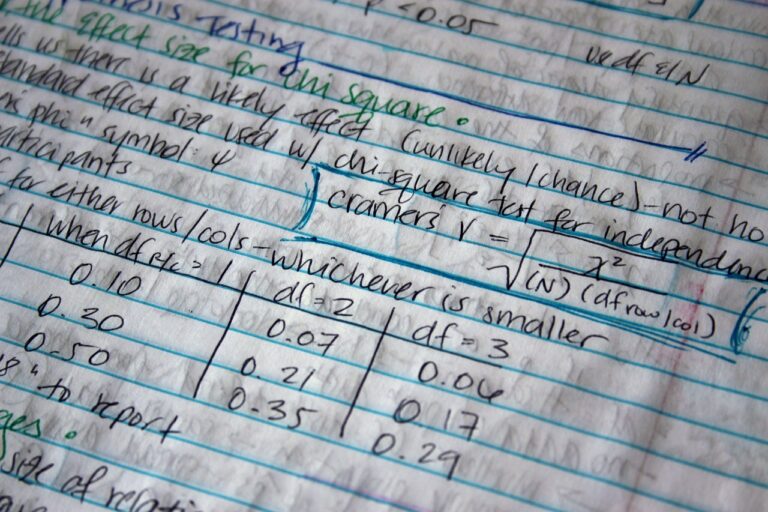 p <0.05
vedf &N
Testing
the effect size for chi square.
ells us there is a likely effect (unlikely/chance) - not. ho
tandard effect size used w/ chi-square test for independenc
phi" symbol: φ
articipants
cramers V = √ x² / (N)(df row/col)
for either rows/cols - whichever is smaller
when df r/c = 1 df = 2 df = 3
0.10 0.07 0.06
0.30 0.21 0.17
0.50 0.35 0.29
" to report
ges.
size of relati